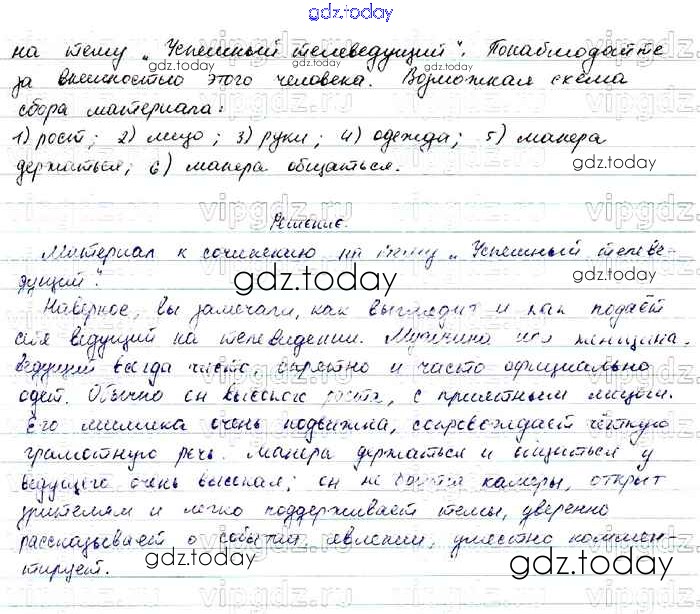 gdz.today
на тему „Успешный телеведущий". Понаблюдайте
за внешностью этого человека. Возможная схема
сбора материала:
1) рост; 2) лицо; 3) руки; 4) одежда; 5) манера
держаться; 6) манера общаться.
Решение.
Материал к сочинению на тему „Успешный телеве-
дущий".
Наверное, вы замечали, как выглядит и как подаёт
себя ведущий на телевидении. Мужчина или женщина.
ведущий всегда чисто, опрятно и часто официально
одет. Обычно он высокого роста, с приятным лицом.
Его мимика очень подвижна, сопровождает чёткую
грамотную речь. Манера держаться и общаться у
ведущего очень высокая; он не боится камеры, открыт
зрителям и легко поддерживает темы, уверенно
рассказывает о событии, явлении, уместно коммен-
тирует.